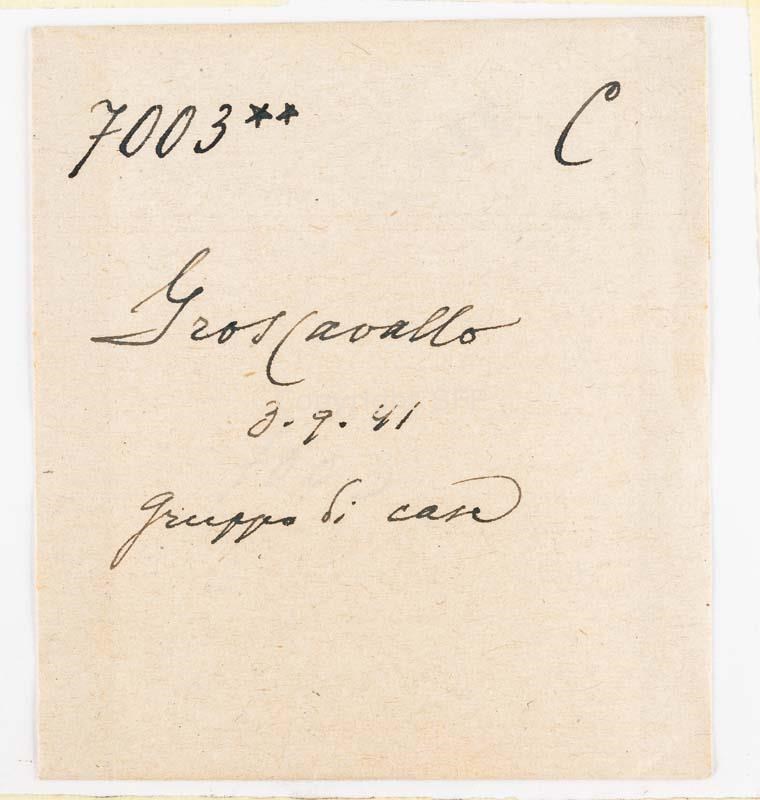 7003** C
Groscavallo
3.9.41
gruppo di case